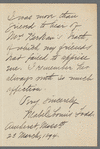 I was more than
friend to hear of
Mr. Graham's death
of which my friends
had failed to apprise
me. I remember him
always with so much
affection.
Very sincerely
Mabel Loomis Todd
Amherst, Mass'tts
21 March, 190